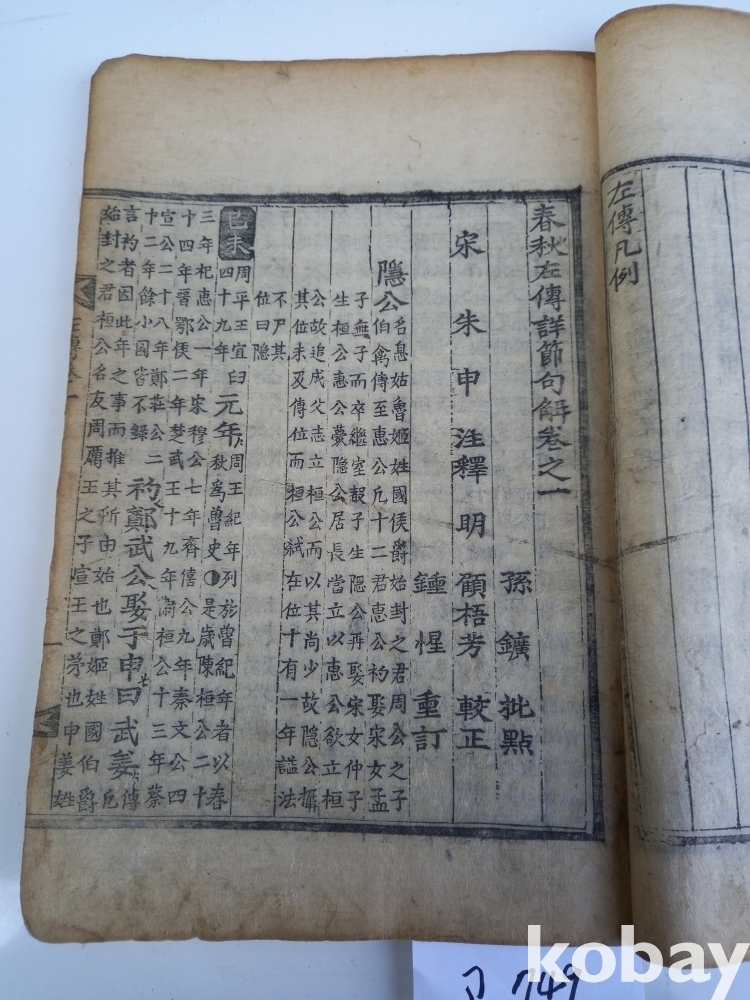 左傳凡例
春秋左傳詳節句解卷之一
孫鑛批點
宋朱申注釋明顧梧芳較正
鍾惺重訂
隱公
名息姑魯姬姓國侯爵始封之君周公之子
伯禽傳至惠公凡十二君惠公初娶宋女孟
子無子而卒繼室聲子生隱公再娶宋女仲子
生桓公惠公薨隱公居長當立以惠公欲立桓
公故追成父志立桓公而以其尚少故隱公攝
其位未及傳位而桓公弒在位十有一年謚法
不尸其
位曰隱
己未
周平王宜臼
四十九年
元年
周王紀年列於魯紀年者以春
秋爲魯史◑是歲陳桓公二十
三年杞惠公一年宋穆公七年齊僖公九年秦文公四
十四年晉鄂侯二年楚武王十九年衛桓公十三年蔡
宣公二十八年鄭莊公二
十二年餘小國皆不錄
初鄭武公娶于申曰武姜
傳凡
言初者因此年之事而推其所由始也鄭姬姓國伯爵
始封之君桓公名友周厲王之子宣王之弟也申姜姓
左傳卷一
一
749
kobay